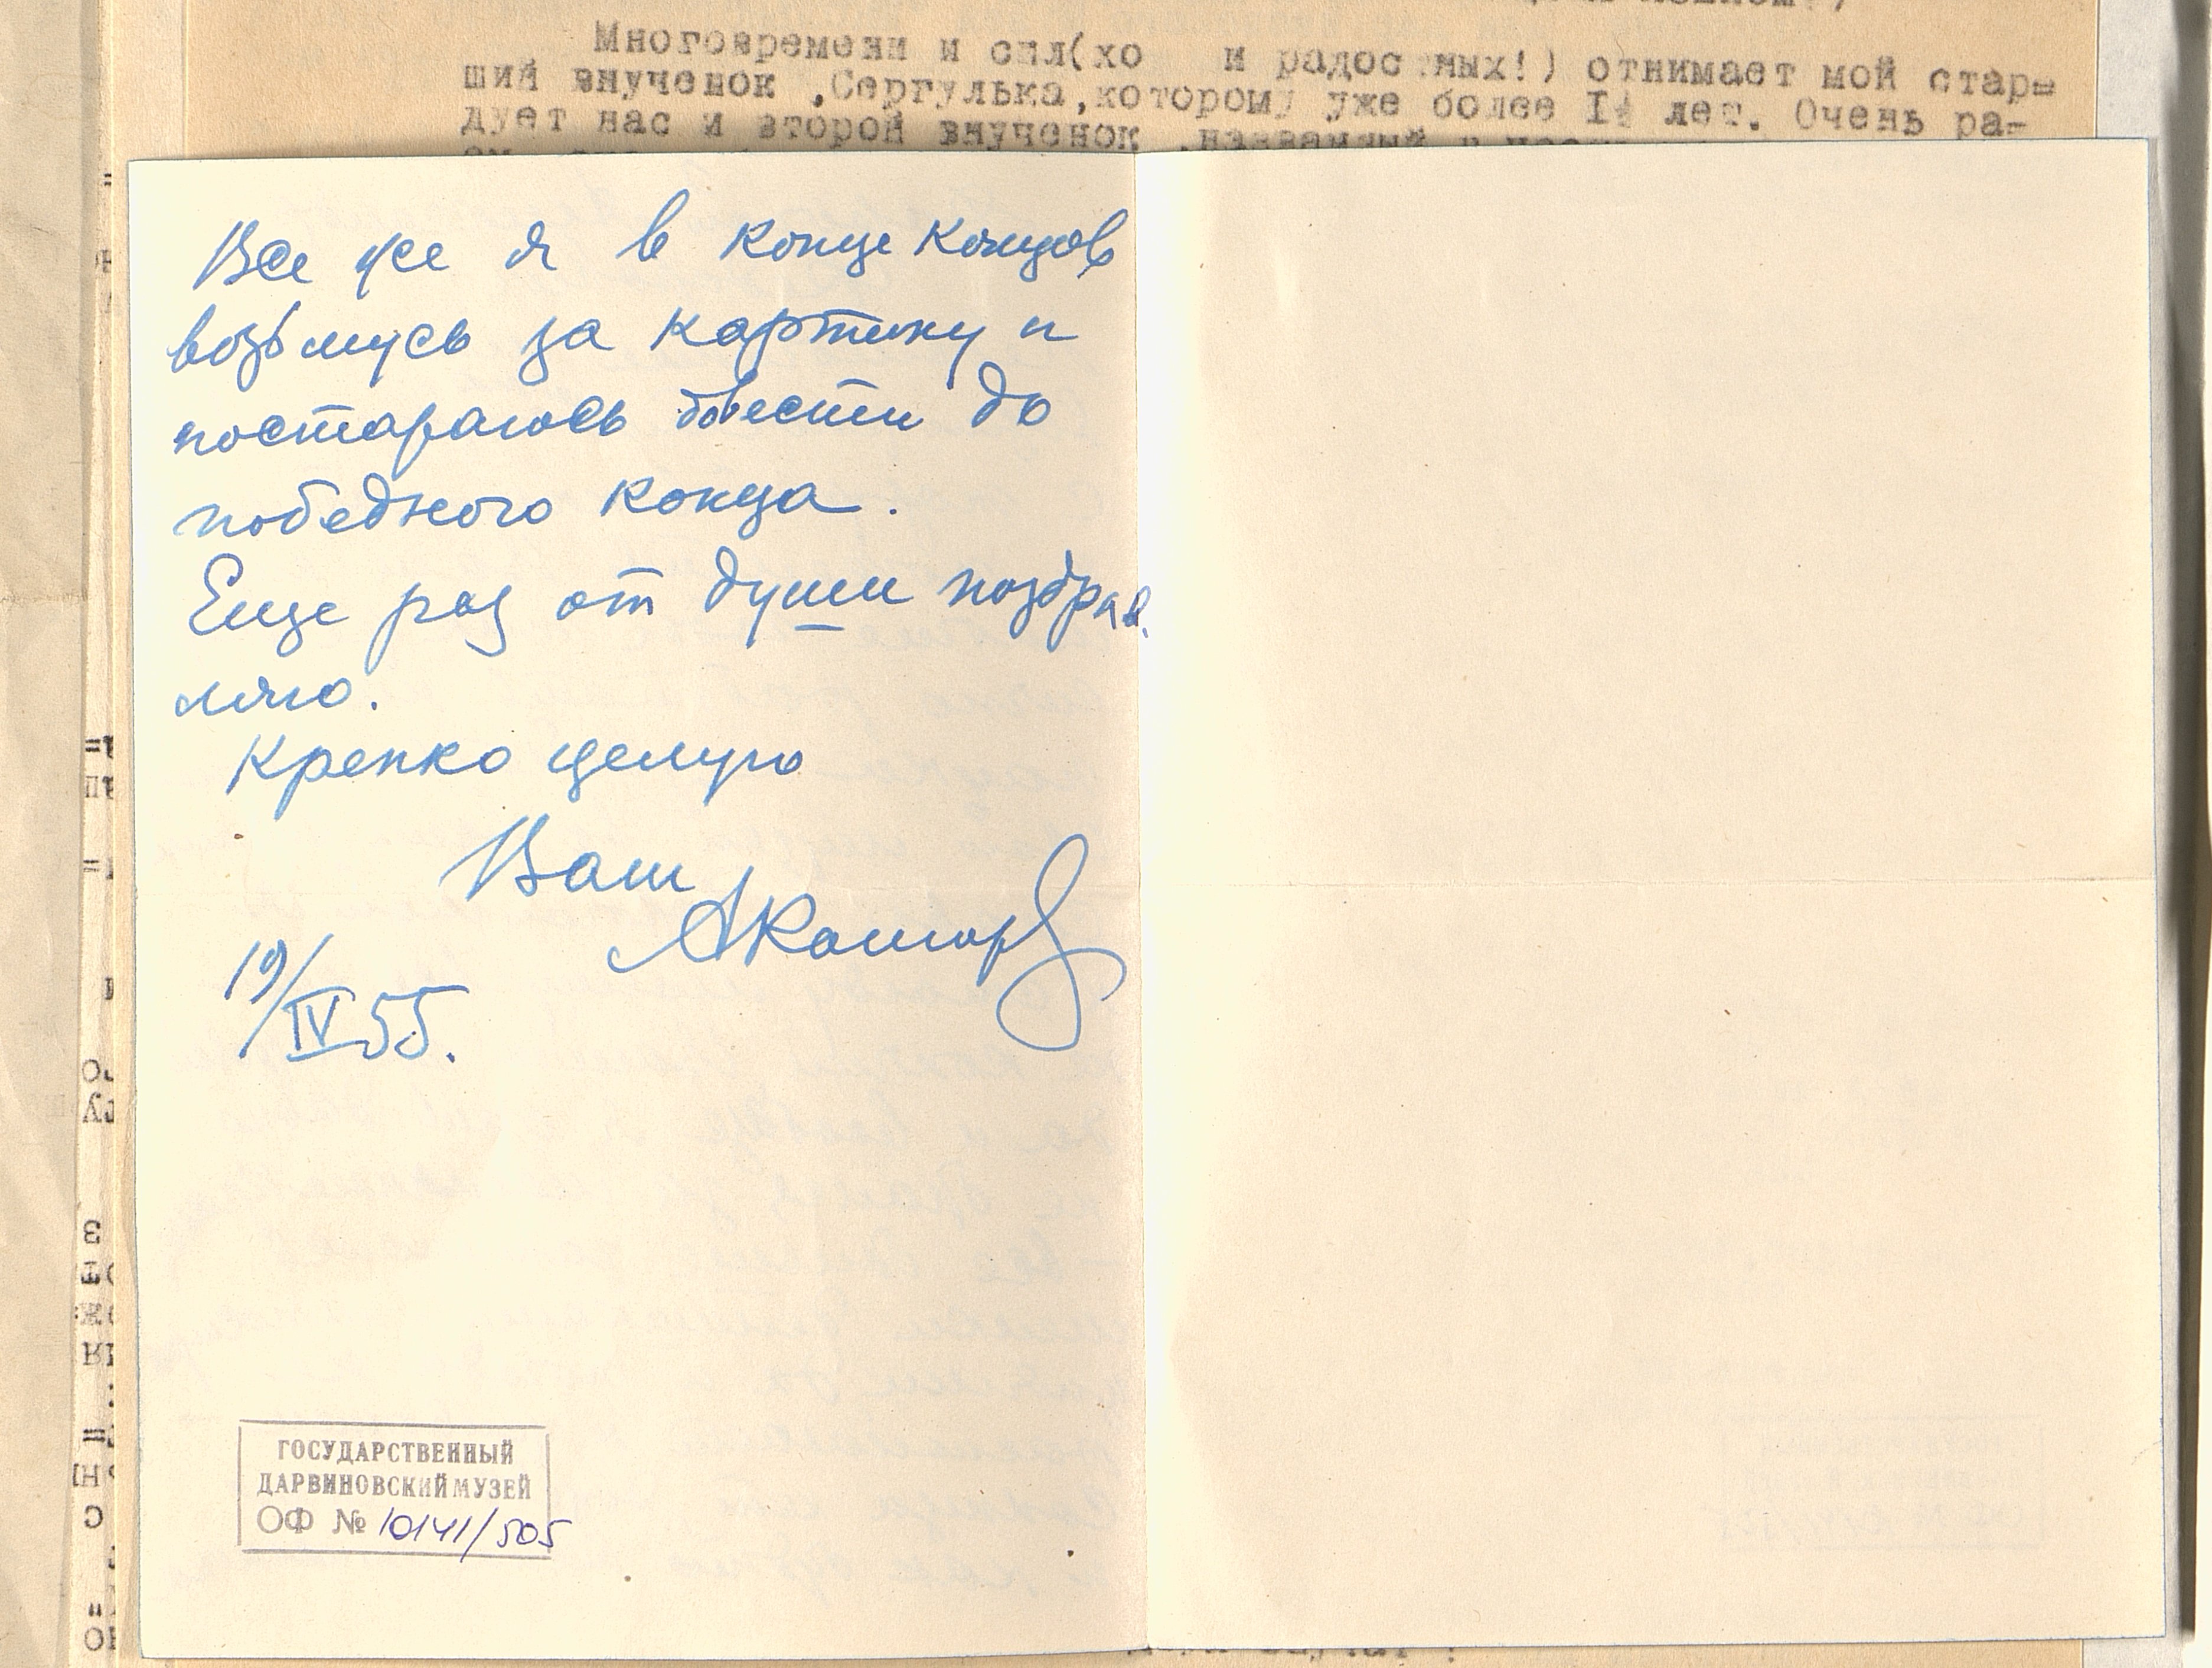 Многовремени и сил(хо и радостных!) отнимает мой стар=
ший внученок ,Сергулька,которому уже более I½ лет. Очень ра=
дует нас и второй внученок
Все же я в конце концов
возьмусь за картину и
постараюсь довести до
победного конца.
Еще раз от души поздрав.
ляю.
Крепко целую
Ваш
19/IV 55.
ГОСУДАРСТВЕННЫЙ
ДАРВИНОВСКИЙ МУЗЕЙ
ОФ № 10141/505